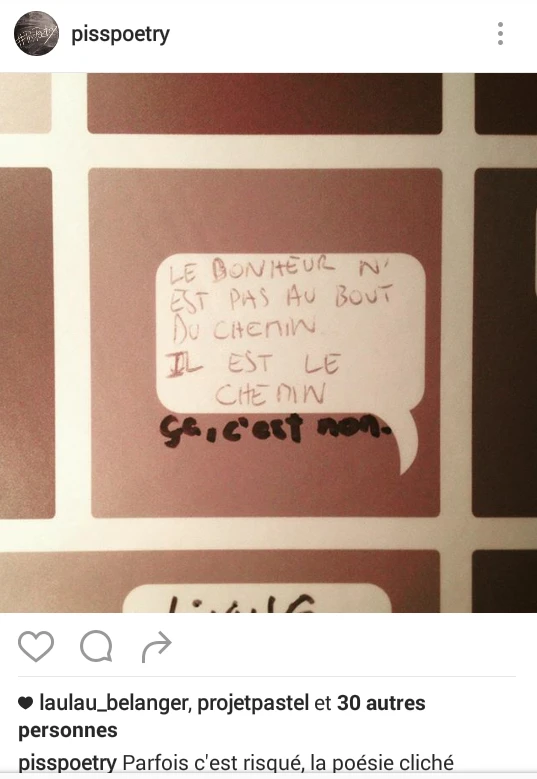 pisspoetry
LE BONHEUR N'
EST PAS AU BOUT
DU CHEMIN
IL EST LE
CHEMIN
ça, c'est non.
laulau_belanger, projetpastel et 30 autres
personnes
pisspoetry Parfois c'est risqué, la poésie cliché